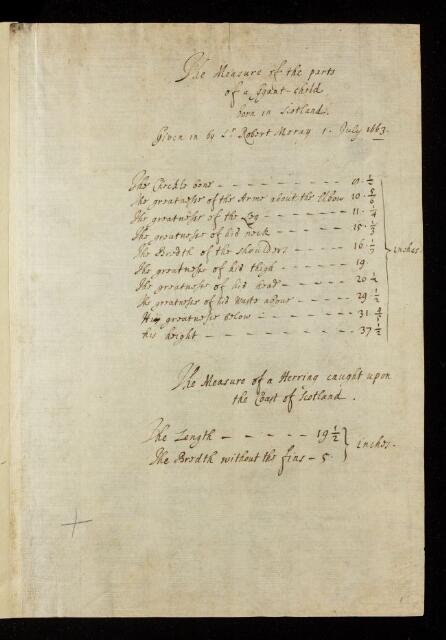 The Measure of the parts
of a Gyant-child
born in Scotland.
Given in by Sr. Robert Moray 1. July 1663.
The Cheekle bone - - - - - - - 10
The greatnesse of the Arme about the Elbow 10
The greatnesse of the Leg - - - - - 11 · 1/4
The greatnesse of his neck - - - - - 15 ·
The Bredth of the shoulders - - - - 16 ·
The greatnesse of his thigh - - - - - 19
The greatnesse of his head - - - - - 20
The greatnesse of his waste above - - - - 29 · 1/2
His greatnesse below - - - - - 31
his height - - - - - - - - 37 · 1/2
inches
The Measure of a Herring caught upon
the Coast of Scotland.
The Length - - - - - 19 1/2
The Bredth without the fins - 5
inches.